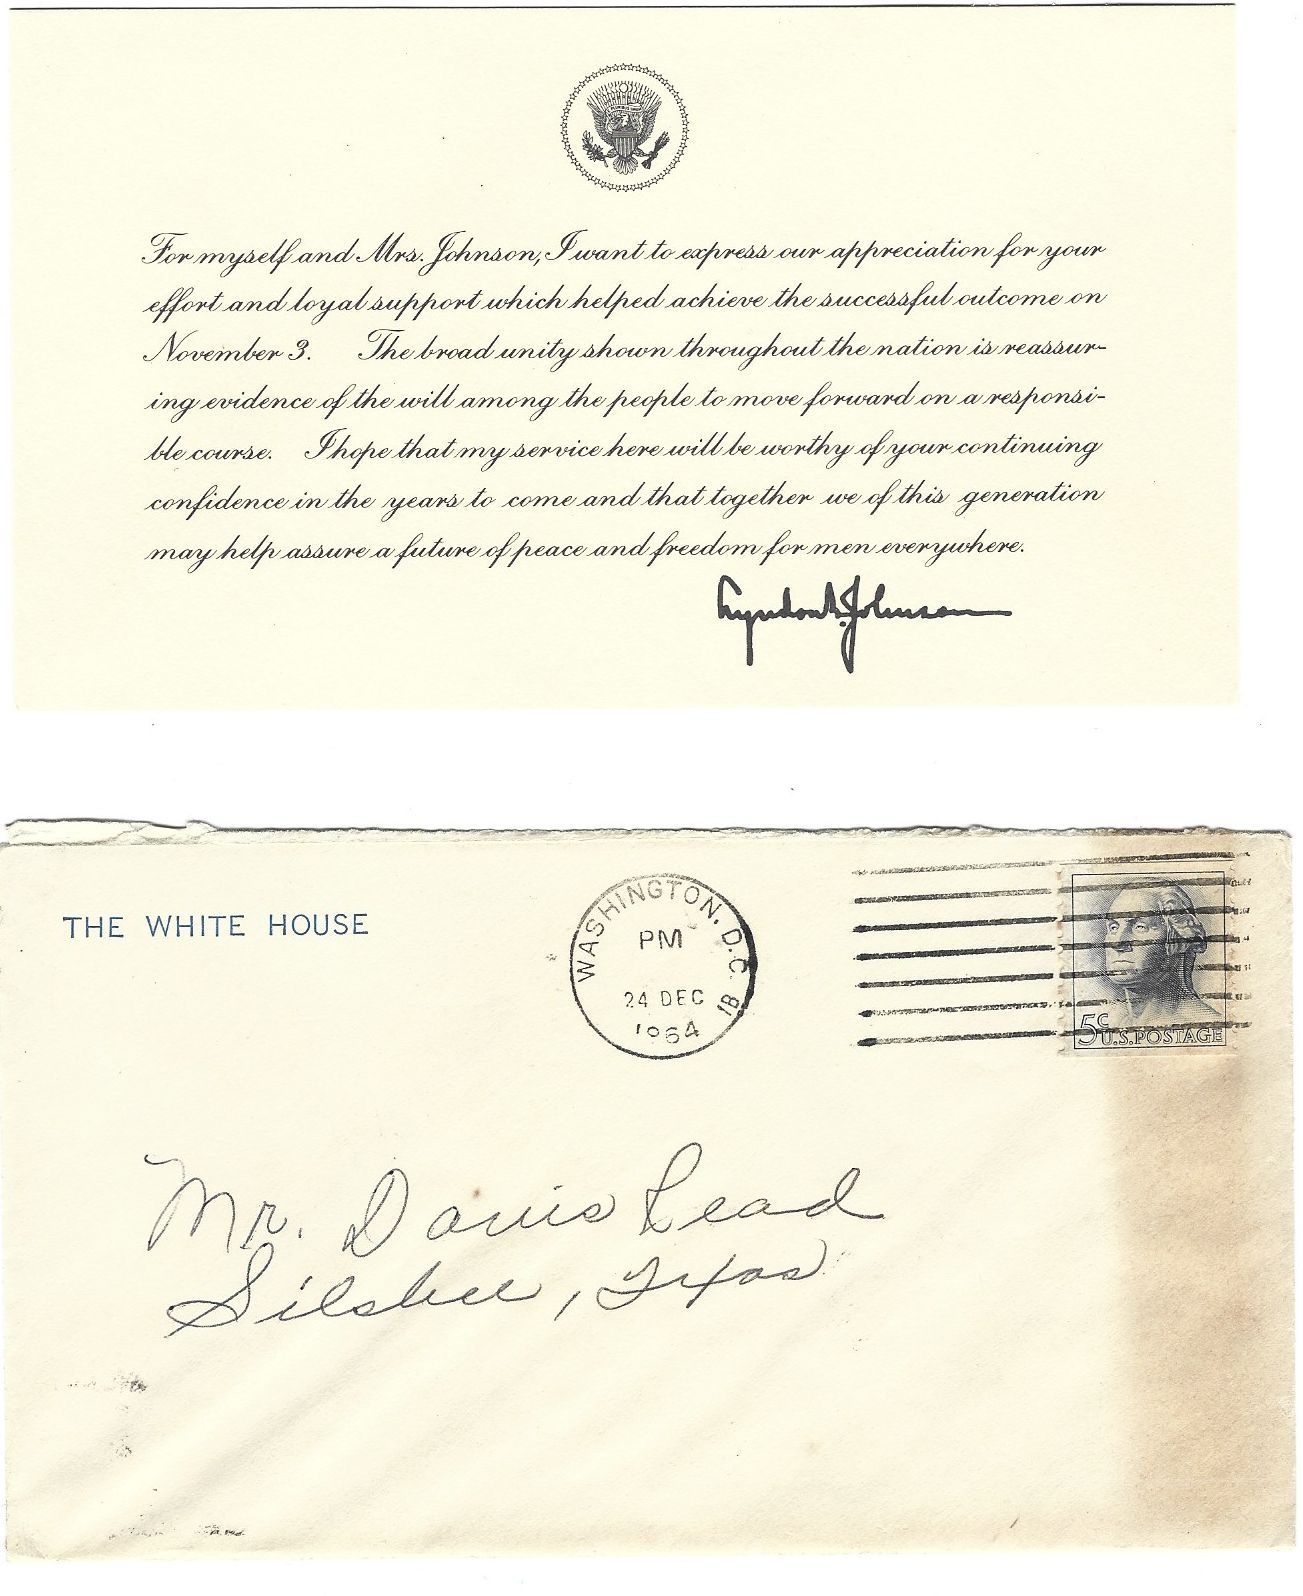 For myself and Mrs. Johnson, I want to express our appreciation for your
effort and loyal support which helped achieve the successful outcome on
November 3. The broad unity shown throughout the nation is reassur-
ing evidence of the will among the people to move forward on a responsi-
ble course. I hope that my service here will be worthy of your continuing
confidence in the years to come and that together we of this generation
may help assure a future of peace and freedom for men everywhere.
Lyndon B. Johnson
THE WHITE HOUSE
WASHINGTON, D.C. 18
PM
24 DEC
1964
5c U.S. POSTAGE
Mr. Davis Read
Silsbee, Texas